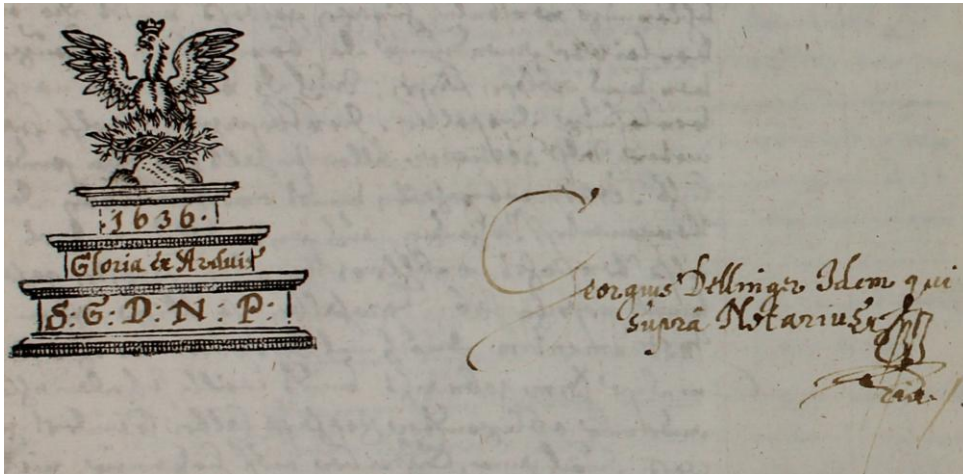 1636.
Gloria ex Arduis
S: G: D: N: P:
Georgius Dellinger Idem qui
suprà Notarius